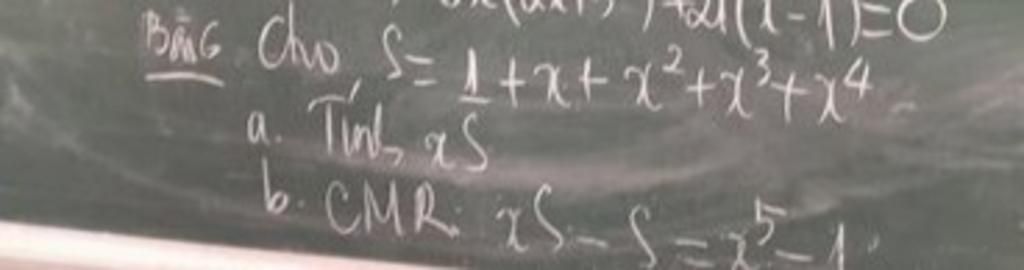 +21(x-1)=0
Bài 6 Cho S = 1 + x + x² + x³ + x⁴
a. Tính xS
b. CMR: xS - S = x⁵ - 1